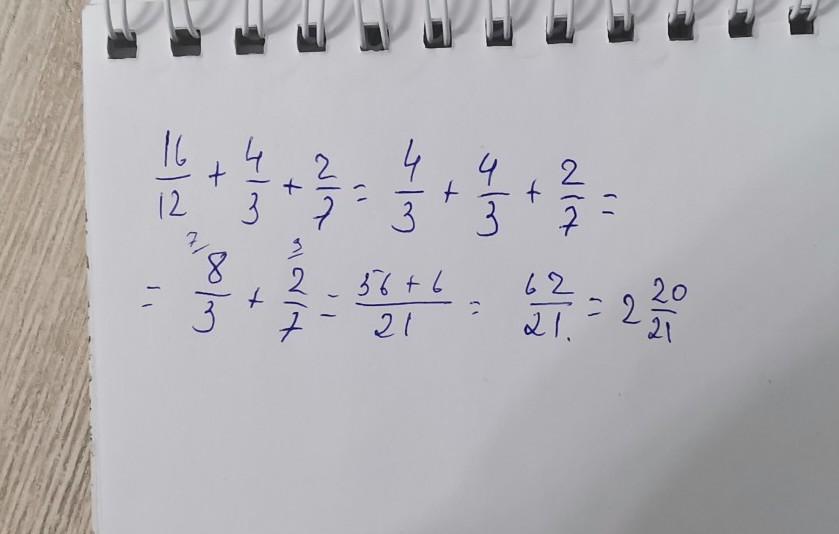 16/12 + 4/3 + 2/7 = 4/3 + 4/3 + 2/7 =
= 7/ 8/3 + 3/ 2/7 = 56 + 6/21 = 62/21. = 2 20/21